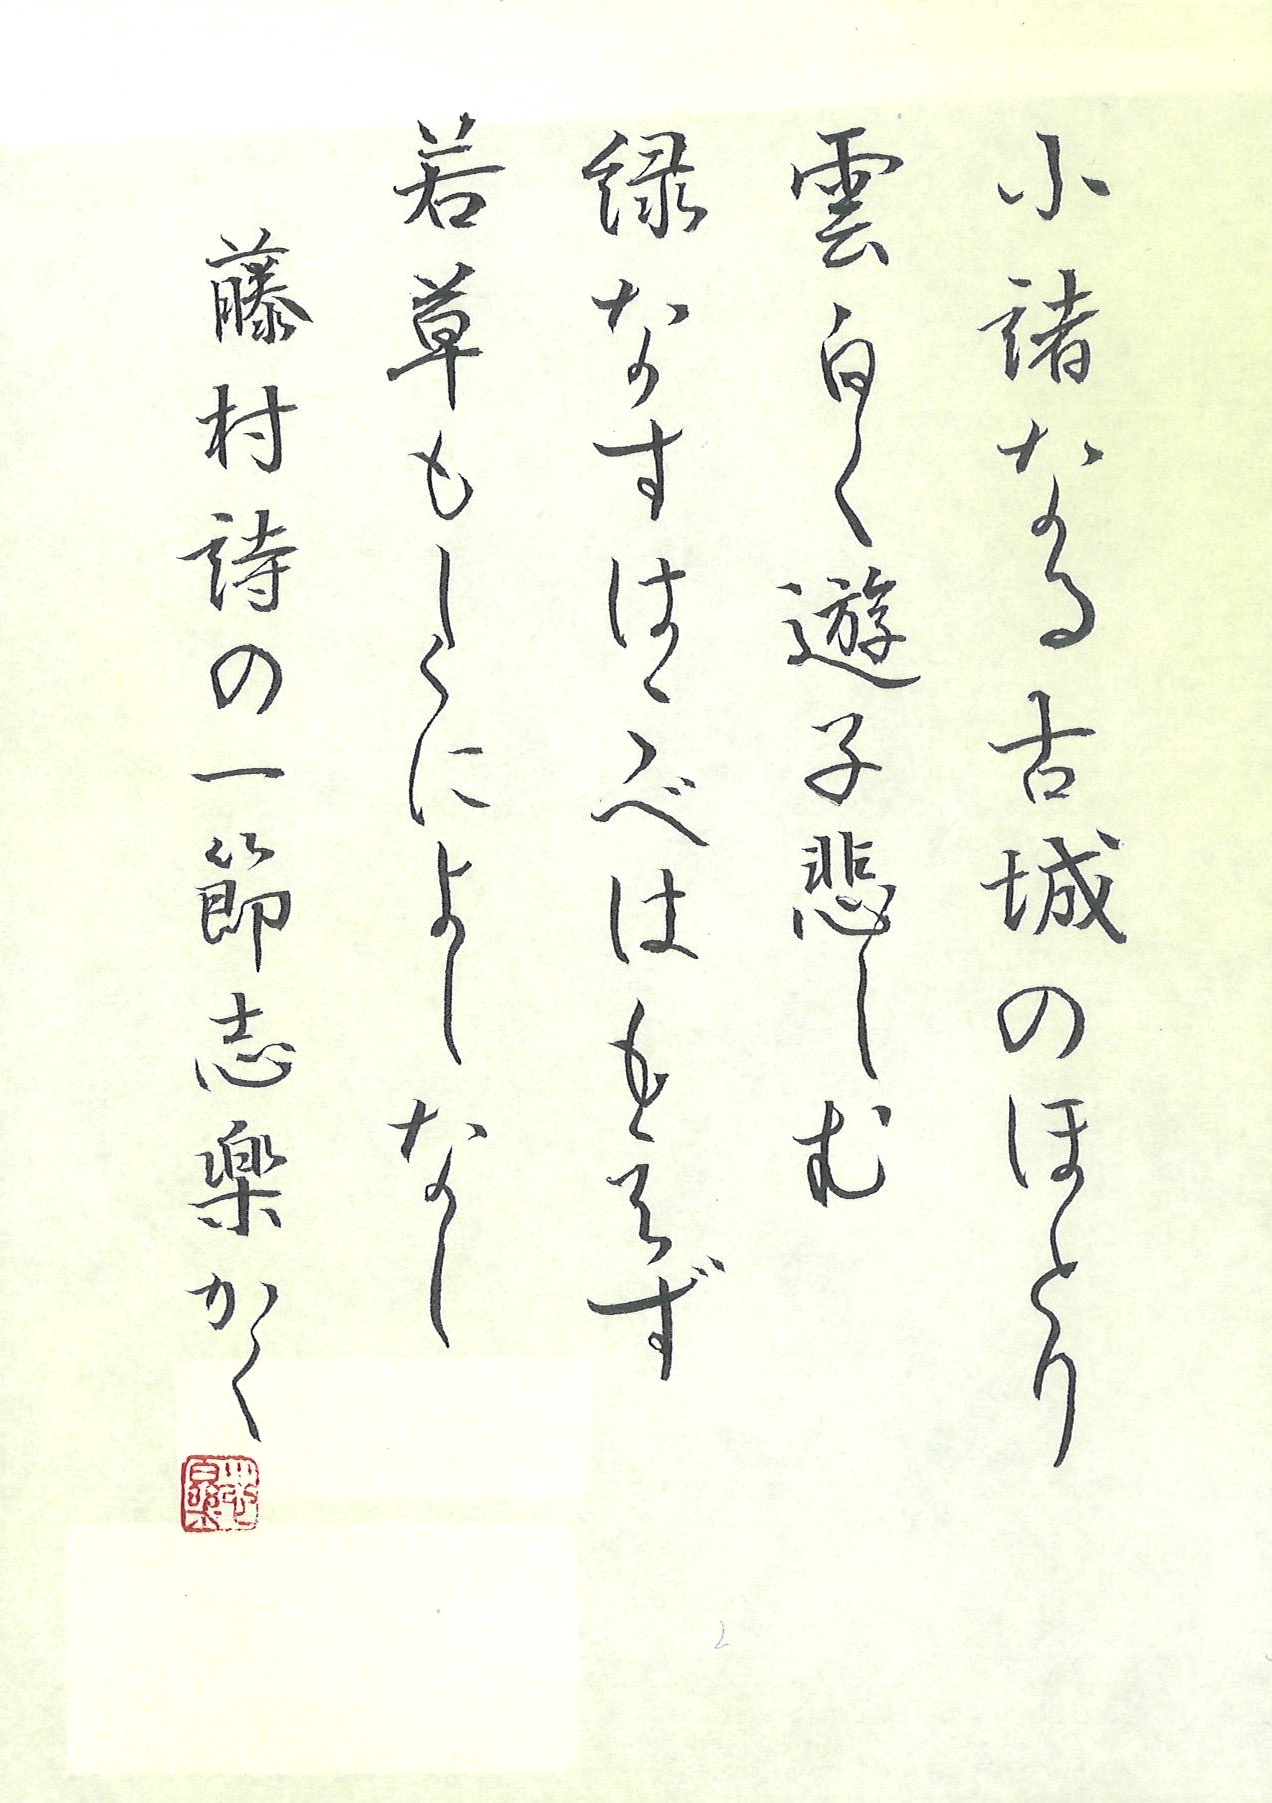 小諸なる古城のほとり
雲白く遊子悲しむ
緑なすはこべはもえず
若草もしくによしなし
藤村詩の一節志楽かく